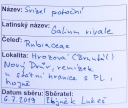 Název: Svízel potoční
Latinský název:
Galium rivale
Čeleď: Rubiaceae
Lokalita: Hrozová (Bruntál)
Nový Dvůr, remízek
u státní hranice s PL,
hojně
Datum sběru: Sběratel:
6.7.2019 Zbyněk Lukeš